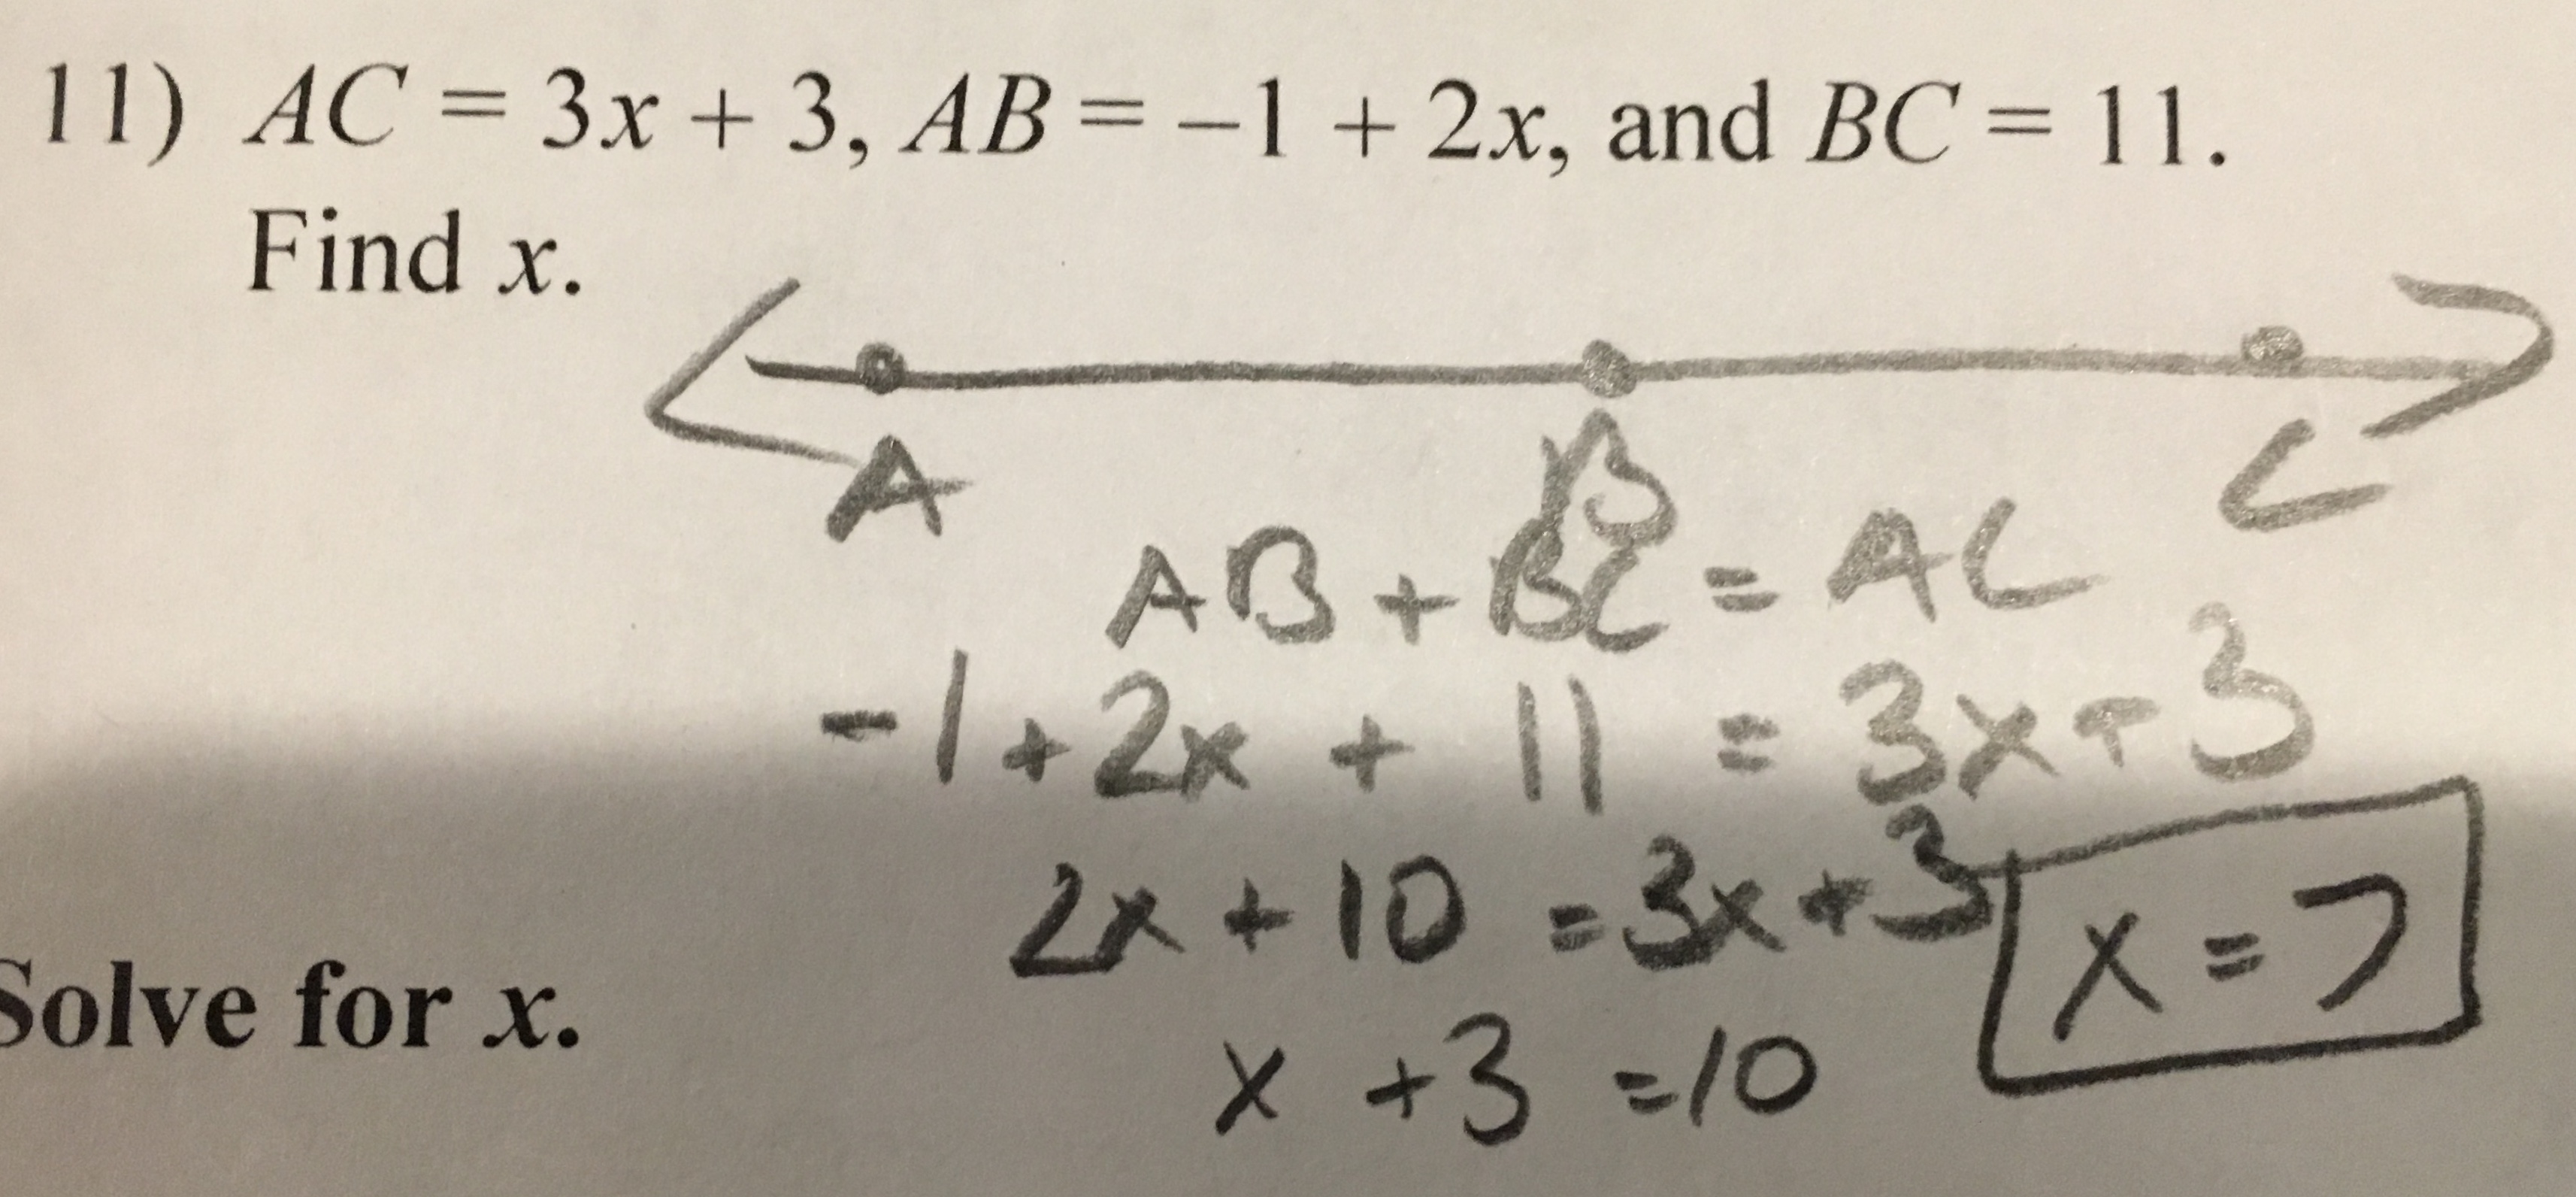 11) AC = 3x + 3, AB = −1 + 2x, and BC = 11.
Find x.
A B C
AB + BC = AC
-1 + 2x + 11 = 3x + 3
2x + 10 = 3x + 3
x = 7
Solve for x.
x + 3 = 10